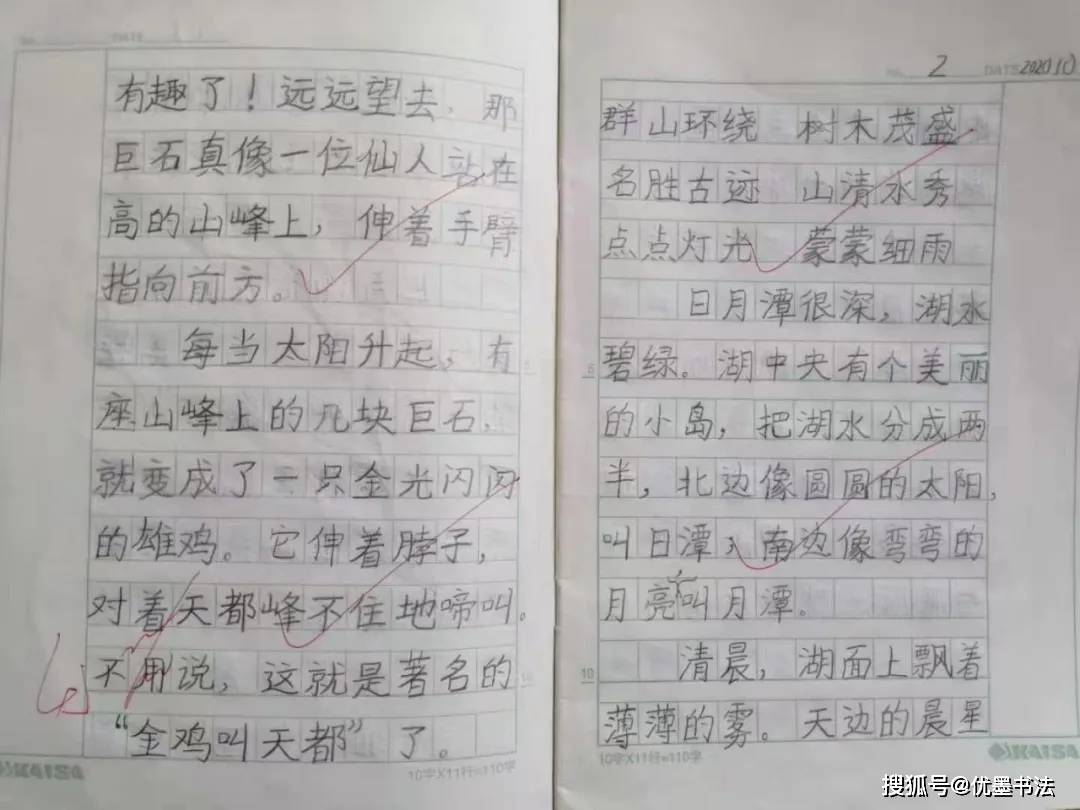 有趣了！远远望去，那
巨石真像一位仙人站在
高的山峰上，伸着手臂
指向前方。
每当太阳升起，有
座山峰上的几块巨石，
就变成了一只金光闪闪
的雄鸡。它伸着脖子，
对着天都峰不住地啼叫。
不用说，这就是著名的
“金鸡叫天都”了。
10字X11行=110字
KAISA
2 DATE 2020 10
群山环绕 树木茂盛
名胜古迹 山清水秀
点点灯光 蒙蒙细雨
日月潭很深，湖水
碧绿。湖中央有个美丽
的小岛，把湖水分成两
半，北边像圆圆的太阳，
叫日潭，南边像弯弯的
月亮叫月潭。
清晨，湖面上飘着
薄薄的雾。天边的晨星
10字X11行=110字
KAISA
搜狐号@优墨书法